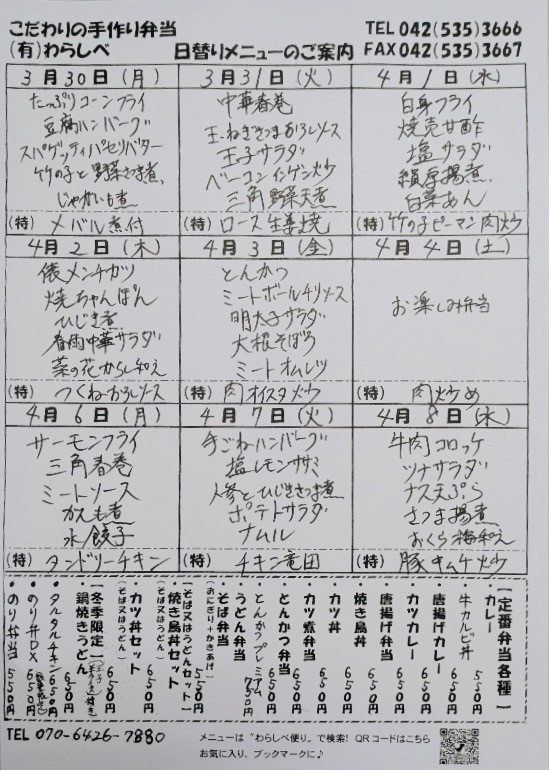 こだわりの手作り弁当
(有)わらしべ
日替りメニューのご案内
TEL 042(535)3666
FAX 042(535)3667
3月30日(月)
たっぷりコーンフライ
豆腐ハンバーグ
スパゲッティパセリバター
竹の子と野菜さつま煮
じゃがいも煮
(特) メバル煮付
3月31日(火)
中華春巻
玉ねぎさつまおろしソース
玉子サラダ
ベーコンインゲン炒
三角野菜天煮
(特) ロース生姜焼
4月1日(水)
白身フライ
焼売甘酢
塩サラダ
絹厚揚煮
白菜あん
(特) 竹の子ピーマン肉炒
4月2日(木)
俵メンチカツ
焼ちゃんぽん
ひじき煮
春雨中華サラダ
菜の花からし和え
(特) つくねおろしソース
4月3日(金)
とんかつ
ミートボールチリソース
明太子サラダ
大根そぼろ
ミートオムレツ
(特) 肉オイスタ炒
4月4日(土)
お楽しみ弁当
(特) 肉炒め
4月6日(月)
サーモンフライ
三角春巻
ミートソース
がんも煮
水餃子
(特) タンドリーチキン
4月7日(火)
手ごねハンバーグ
塩レモンササミ
人参とひじきさつま煮
ポテトサラダ
ナムル
(特) チキン竜田
4月8日(水)
牛肉コロッケ
ツナサラダ
ナス天ぷら
さつま揚煮
おくら梅和え
(特) 豚キムチ炒
【定番弁当各種】
・カレー 550円
・牛カルビ丼 650円
・唐揚げカレー 650円
・カツカレー 650円
・唐揚げ弁当 650円
・焼き鳥丼 650円
・カツ丼 650円
・カツ煮弁当 650円
・とんかつ弁当 650円
・とんかつプレミアム 750円
・うどん弁当
・そば弁当
(おにぎり+かきあげ) 550円
【そば又はうどんセット】
・焼き鳥丼セット
(そば又はうどん) 650円
・カツ丼セット
(そば又はうどん) 650円
【冬季限定】
鍋焼きうどん 650円
・タルタルチキン 650円
・のり弁DX 650円
・のり弁当 550円
TEL 070-6426-7880
メニューは"わらしべ便り"で検索! QRコードはこちら
お気に入り、ブックマークに♪